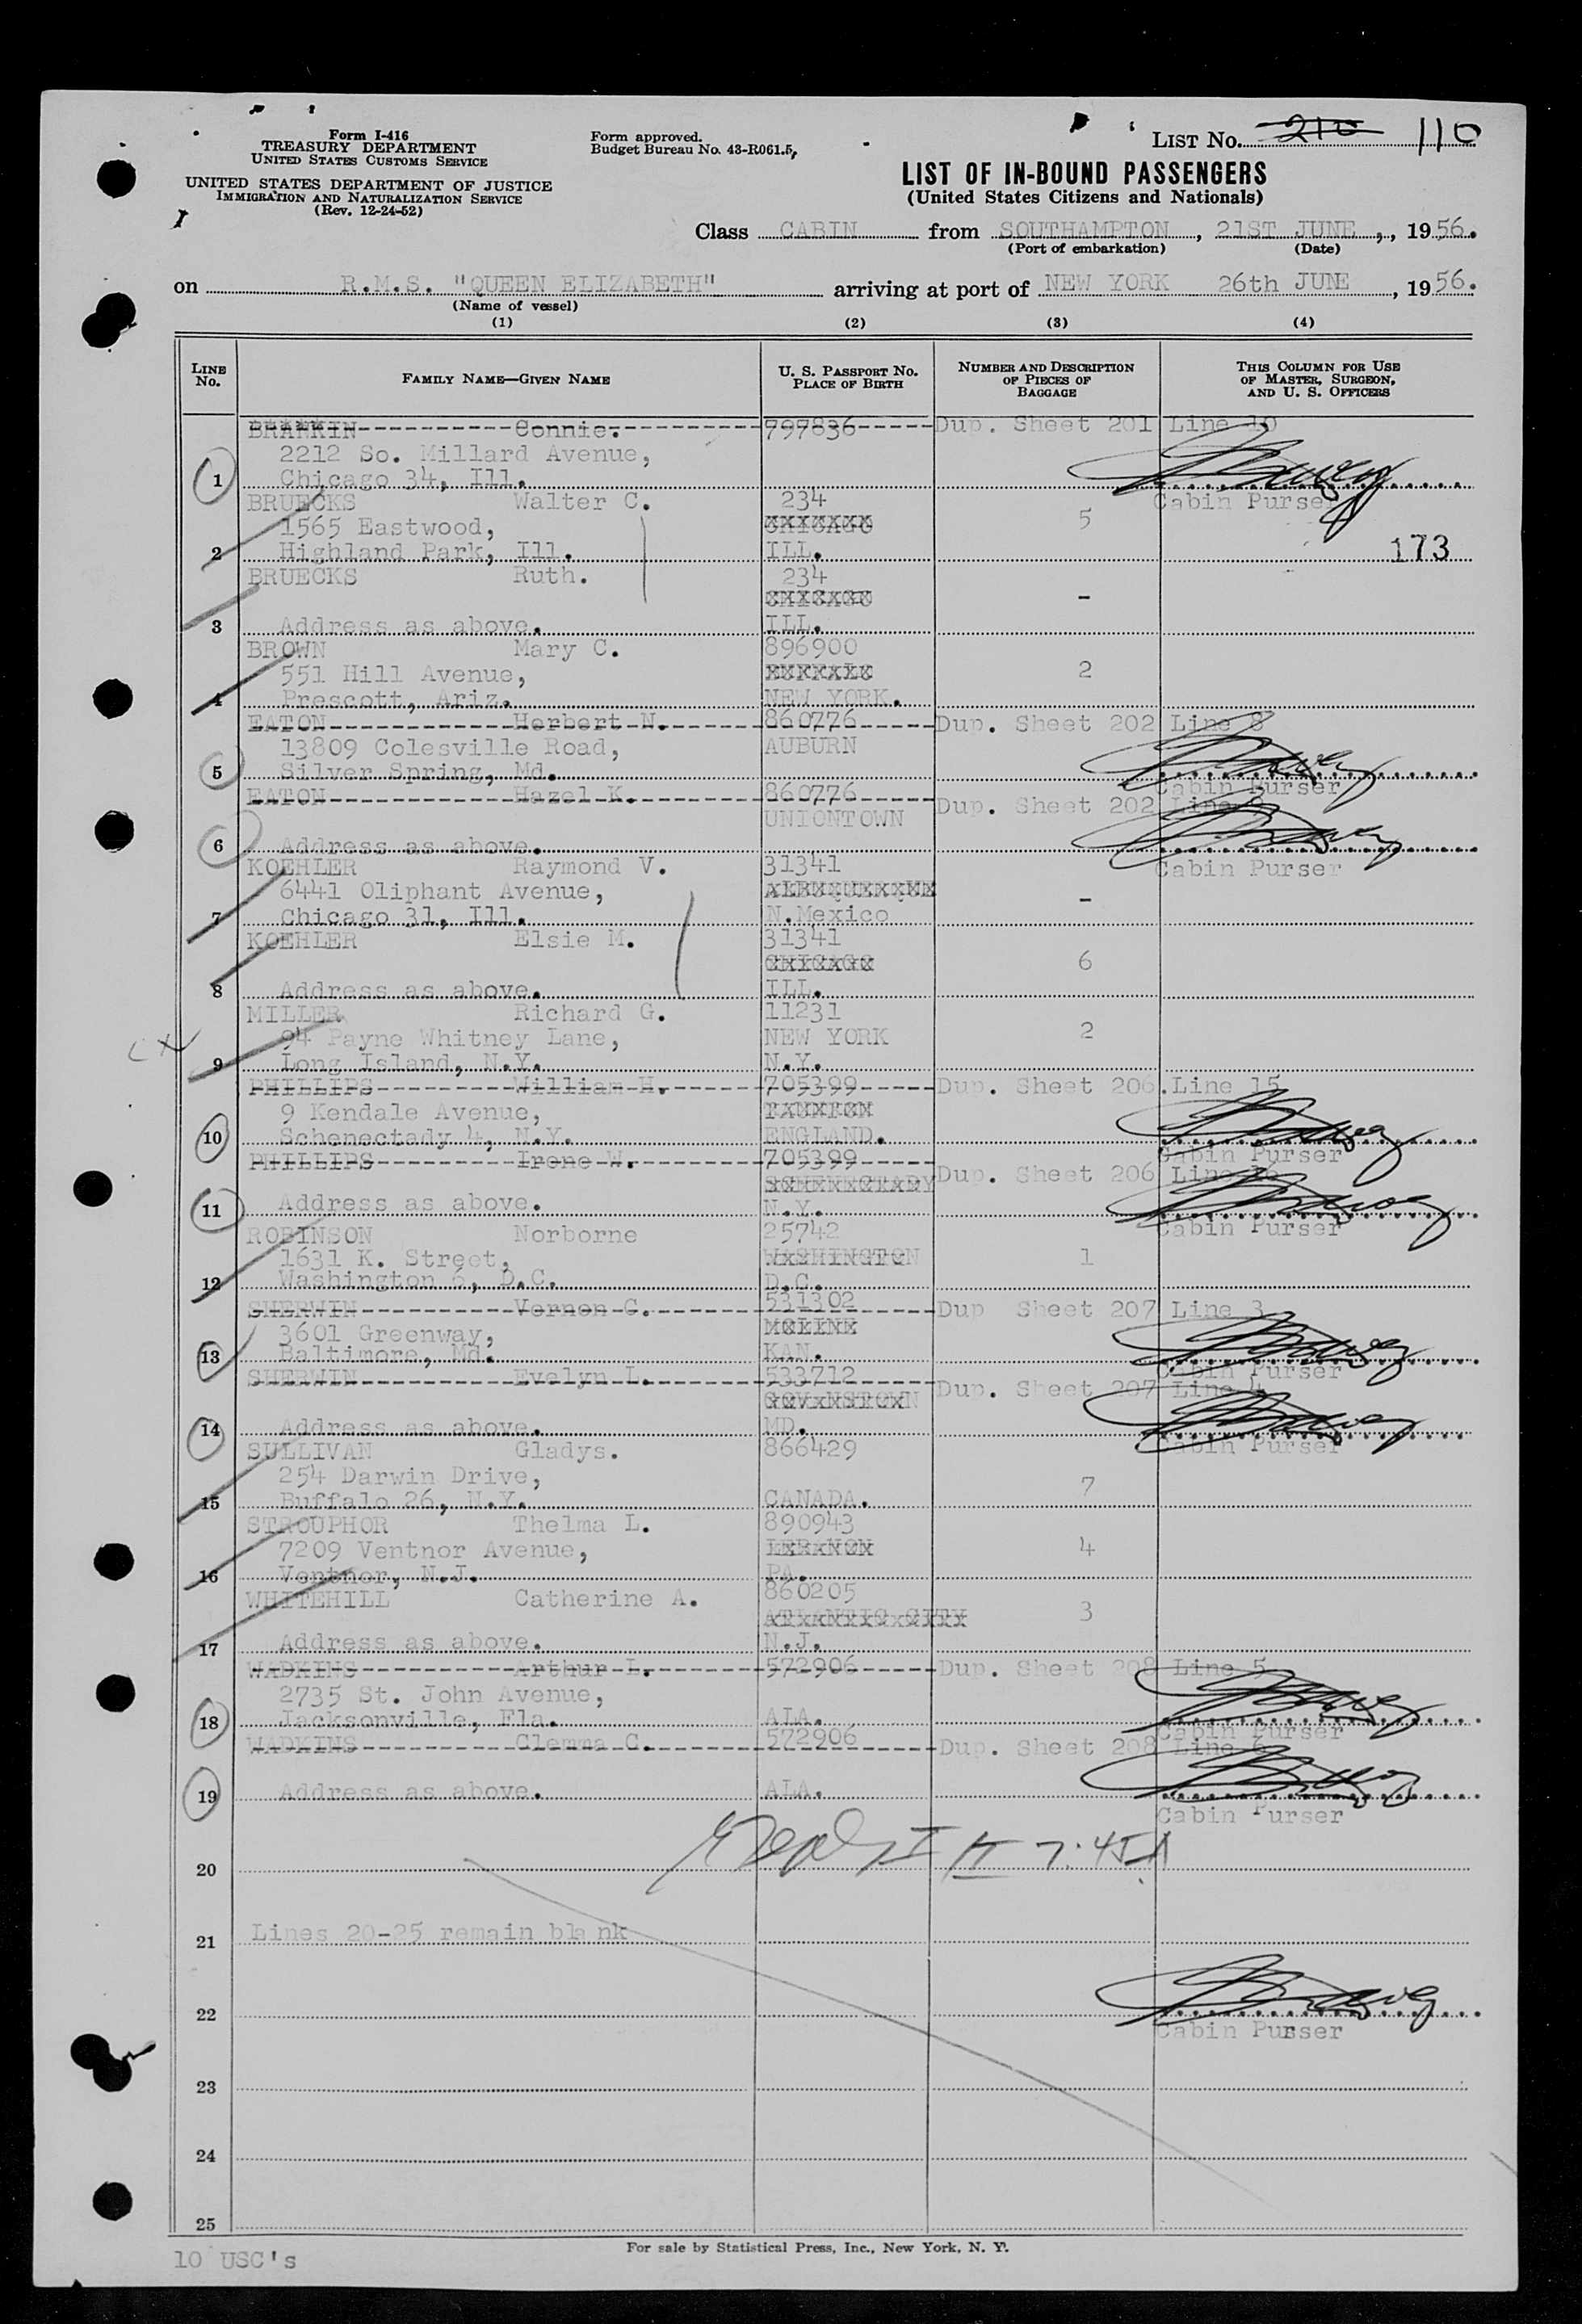 Form I-416
TREASURY DEPARTMENT
UNITED STATES CUSTOMS SERVICE
UNITED STATES DEPARTMENT OF JUSTICE
IMMIGRATION AND NATURALIZATION SERVICE
(Rev. 12-24-52)
Form approved.
Budget Bureau No. 43-R061.5.
LIST No. 210 110
LIST OF IN-BOUND PASSENGERS
(United States Citizens and Nationals)
Class CABIN from SOUTHAMPTON, 21ST JUNE, 1956.
(Port of embarkation) (Date)
on R.M.S. "QUEEN ELIZABETH" arriving at port of NEW YORK 26th JUNE, 1956.
(Name of vessel)
(1) (2) (3) (4)
LINE No. FAMILY NAME—GIVEN NAME U. S. PASSPORT No. PLACE OF BIRTH NUMBER AND DESCRIPTION OF PIECES OF BAGGAGE THIS COLUMN FOR USE OF MASTER, SURGEON, AND U. S. OFFICERS
Connie. 797836 Dup. Sheet 201 Line 10
2212 So. Millard Avenue,
1 Chicago 34, Ill.
Cabin Purser
BRUECKS Walter C. 234 5
1565 Eastwood, CHICAGO
2 Highland Park, Ill. ILL. 173
BRUECKS Ruth. 234
CHICAGO -
3 Address as above. ILL.
BROWN Mary C. 896900
551 Hill Avenue, 2
4 Prescott, Ariz. NEW YORK.
EATON Herbert N. 860776 Dup. Sheet 202 Line 8
13809 Colesville Road, AUBURN
5 Silver Spring, Md.
Cabin Purser
EATON Hazel K. 860776 Dup. Sheet 202 Line 9
UNIONTOWN
6 Address as above.
Cabin Purser
KOEHLER Raymond V. 31341
6441 Oliphant Avenue, -
7 Chicago 31, Ill. N.Mexico
KOEHLER Elsie M. 31341
CHICAGO 6
8 Address as above. ILL.
MILLER Richard G. 11231
94 Payne Whitney Lane, NEW YORK 2
9 Long Island, N.Y. N.Y.
PHILLIPS William H. 705399 Dup. Sheet 206.Line 15
9 Kendale Avenue,
10 Schenectady 4, N.Y. ENGLAND.
Cabin Purser
PHILLIPS Irene W. 705399 Dup. Sheet 206 Line 16
SCHENECTADY
11 Address as above. N.Y.
Cabin Purser
ROBINSON Norborne 25742
1631 K. Street, WASHINGTON 1
12 Washington 6, D.C. D.C.
SHERWIN Vernon G. 531302 Dup Sheet 207 Line 3
3601 Greenway, MOLINE
13 Baltimore, Md. KAN.
Cabin Purser
SHERWIN Evelyn L. 533712 Dup. Sheet 207 Line 4
14 Address as above. MD.
Cabin Purser
SULLIVAN Gladys. 866429
254 Darwin Drive, 7
15 Buffalo 26, N.Y. CANADA.
STROUPHOR Thelma L. 890943
7209 Ventnor Avenue, LEBANON 4
16 Ventnor, N.J. PA.
WHITEHILL Catherine A. 860205
ATLANTIC CITY 3
17 Address as above. N.J.
WADKINS Arthur L. 572906 Dup. Sheet 208 Line 5
2735 St. John Avenue,
18 Jacksonville, Fla. ALA.
Cabin Purser
WADKINS Clemma C. 572906 Dup. Sheet 208 Line 6
19 Address as above. ALA.
Cabin Purser
20 7:45A
21 Lines 20-25 remain blank
22
Cabin Purser
23
24
25
10 USC's
For sale by Statistical Press, Inc., New York, N. Y.